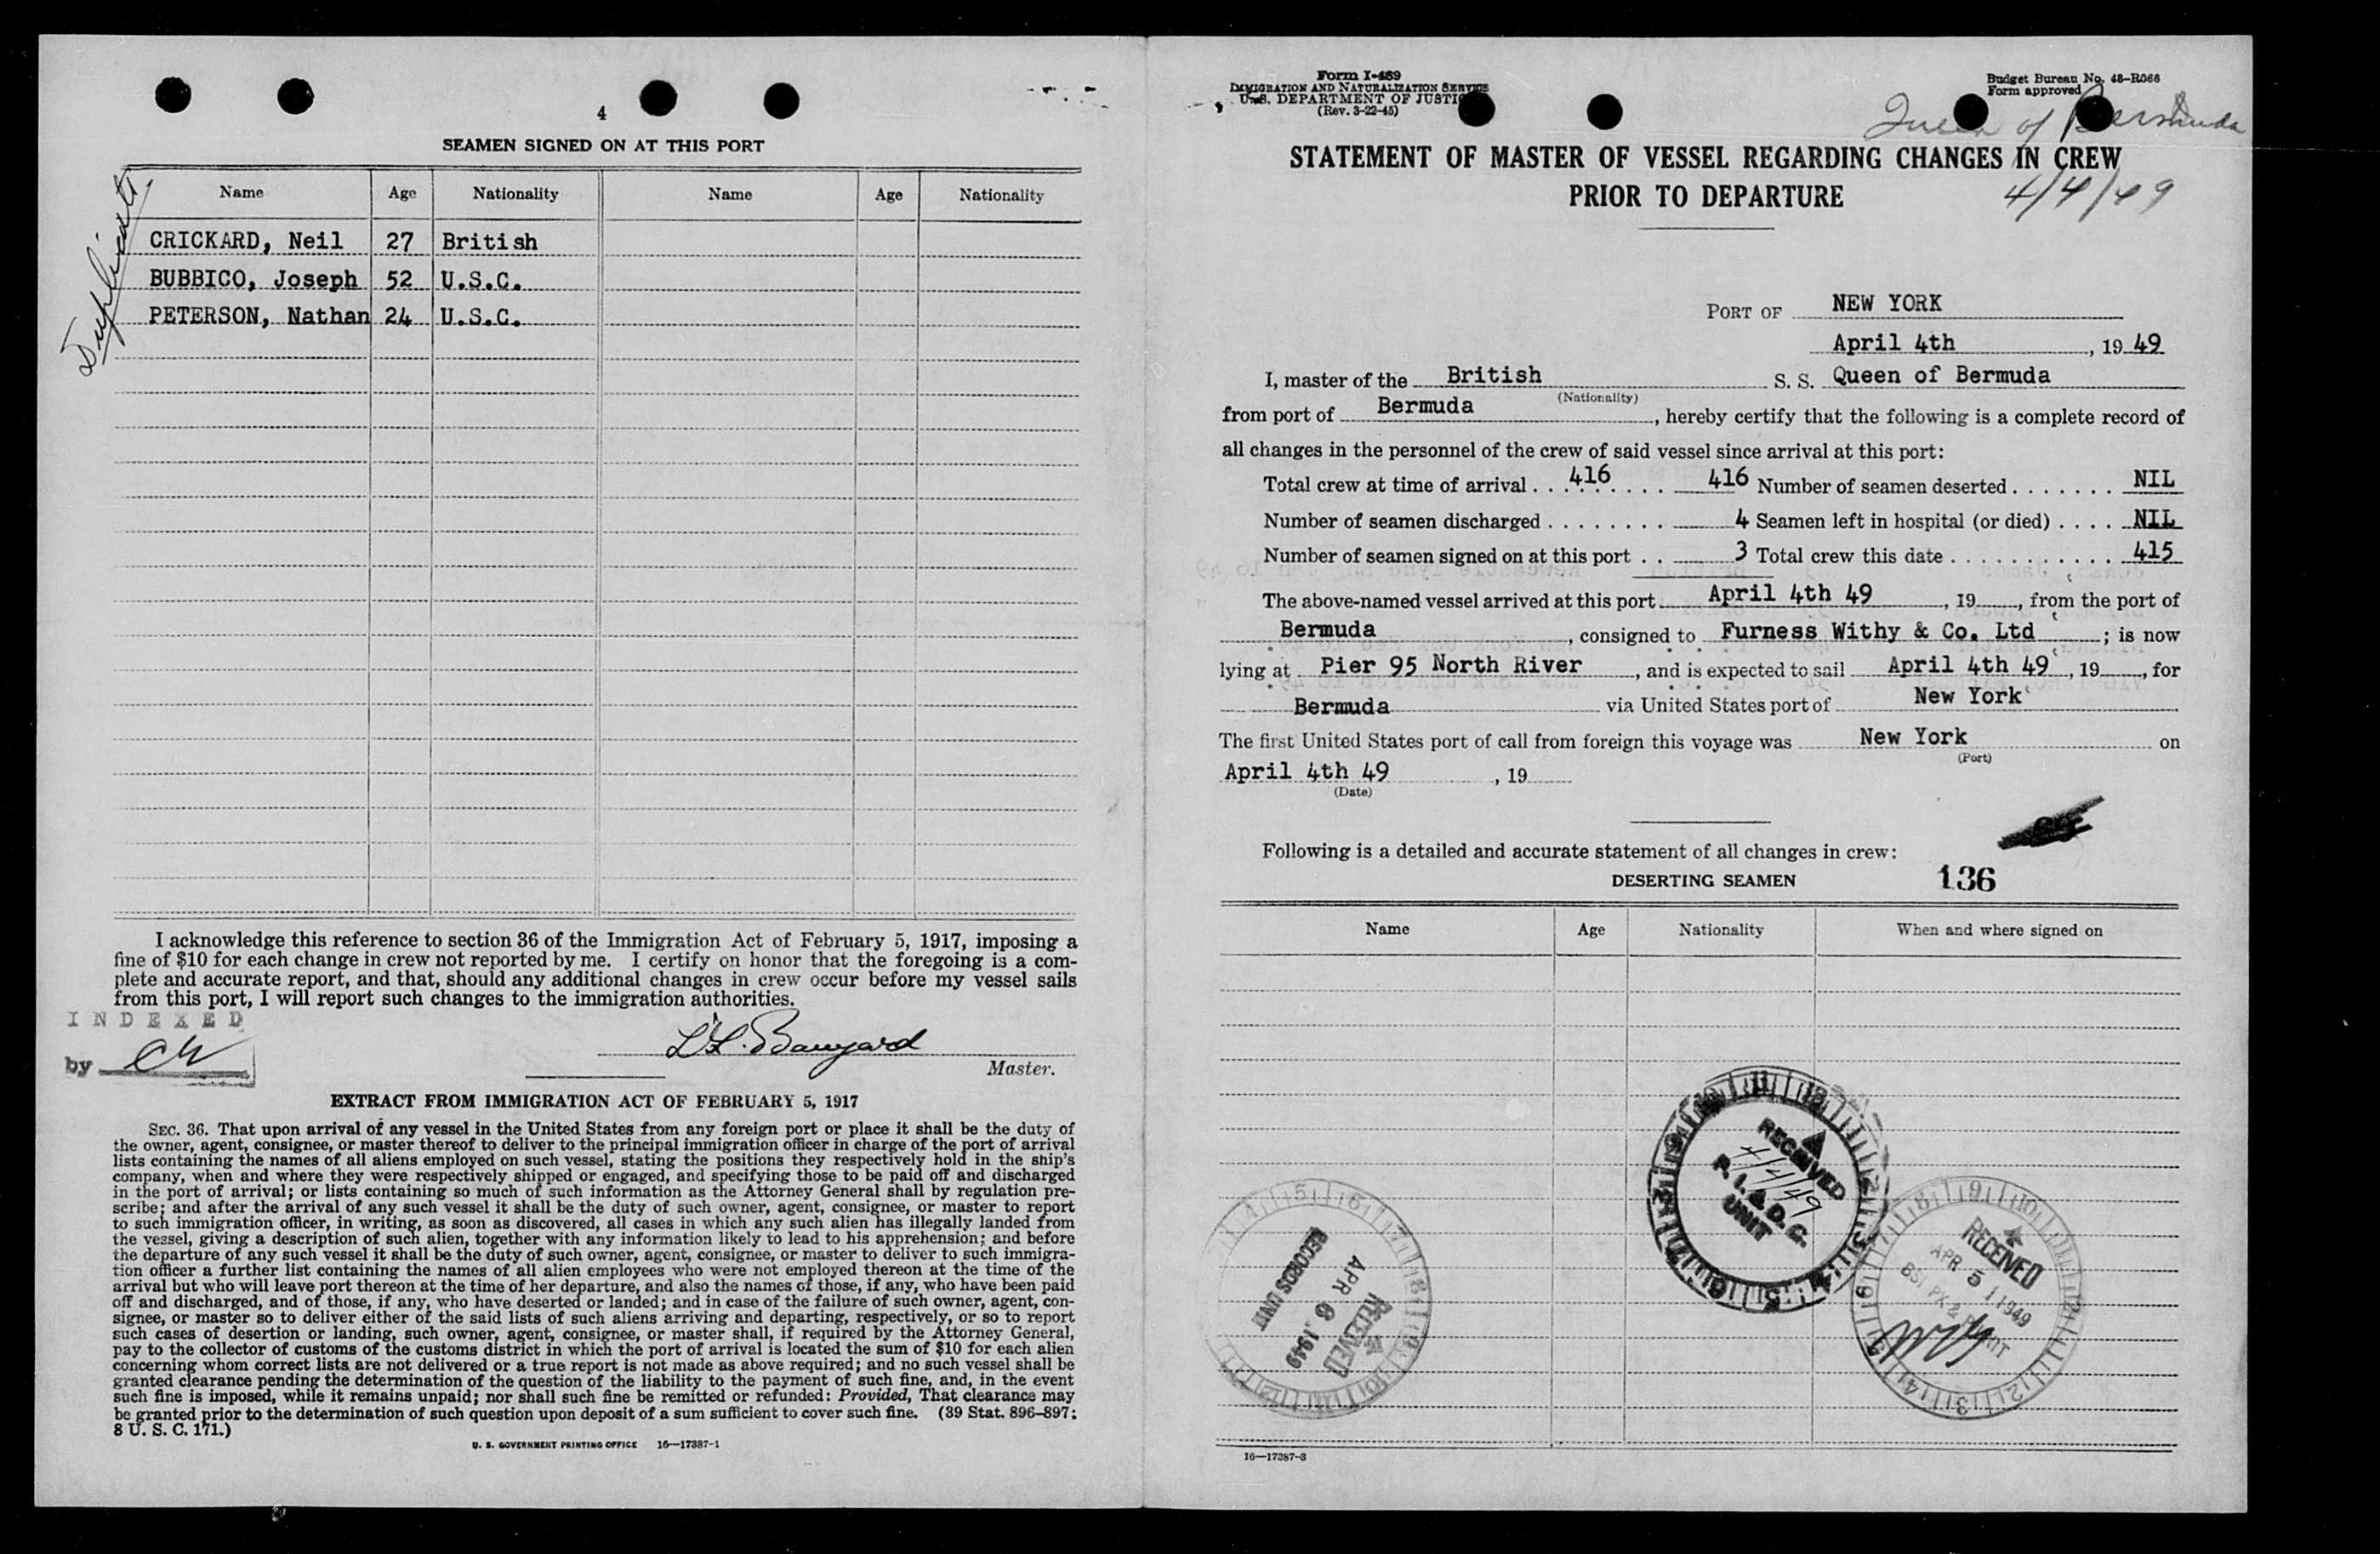 4
SEAMEN SIGNED ON AT THIS PORT
Name Age Nationality Name Age Nationality
Duplicate
CRICKARD, Neil 27 British
BUBBICO, Joseph 52 U.S.C.
PETERSON, Nathan 24 U.S.C.
I acknowledge this reference to section 36 of the Immigration Act of February 5, 1917, imposing a
fine of $10 for each change in crew not reported by me. I certify on honor that the foregoing is a com-
plete and accurate report, and that, should any additional changes in crew occur before my vessel sails
from this port, I will report such changes to the immigration authorities.
INDEXED
by
Master.
EXTRACT FROM IMMIGRATION ACT OF FEBRUARY 5, 1917
SEC. 36. That upon arrival of any vessel in the United States from any foreign port or place it shall be the duty of
the owner, agent, consignee, or master thereof to deliver to the principal immigration officer in charge of the port of arrival
lists containing the names of all aliens employed on such vessel, stating the positions they respectively hold in the ship's
company, when and where they were respectively shipped or engaged, and specifying those to be paid off and discharged
in the port of arrival; or lists containing so much of such information as the Attorney General shall by regulation pre-
scribe; and after the arrival of any such vessel it shall be the duty of such owner, agent, consignee, or master to report
to such immigration officer, in writing, as soon as discovered, all cases in which any such alien has illegally landed from
the vessel, giving a description of such alien, together with any information likely to lead to his apprehension; and before
the departure of any such vessel it shall be the duty of such owner, agent, consignee, or master to deliver to such immigra-
tion officer a further list containing the names of all alien employees who were not employed thereon at the time of the
arrival but who will leave port thereon at the time of her departure, and also the names of those, if any, who have been paid
off and discharged, and of those, if any, who have deserted or landed; and in case of the failure of such owner, agent, con-
signee, or master so to deliver either of the said lists of such aliens arriving and departing, respectively, or so to report
such cases of desertion or landing, such owner, agent, consignee, or master shall, if required by the Attorney General,
pay to the collector of customs of the customs district in which the port of arrival is located the sum of $10 for each alien
concerning whom correct lists are not delivered or a true report is not made as above required; and no such vessel shall be
granted clearance pending the determination of the question of the liability to the payment of such fine, and, in the event
such fine is imposed, while it remains unpaid; nor shall such fine be remitted or refunded: Provided, That clearance may
be granted prior to the determination of such question upon deposit of a sum sufficient to cover such fine. (39 Stat. 896–897;
8 U. S. C. 171.)
U. S. GOVERNMENT PRINTING OFFICE 16—17387-1
Form I-489
IMMIGRATION AND NATURALIZATION SERVICE
U. S. DEPARTMENT OF JUSTICE
(Rev. 3-22-45)
Budget Bureau No. 48-R066
Form approved
Queen of Bermuda
STATEMENT OF MASTER OF VESSEL REGARDING CHANGES IN CREW
PRIOR TO DEPARTURE
4/4/49
PORT OF NEW YORK
April 4th, 19 49
I, master of the British S. S. Queen of Bermuda
(Nationality)
from port of Bermuda, hereby certify that the following is a complete record of
all changes in the personnel of the crew of said vessel since arrival at this port:
Total crew at time of arrival . . 416 . . . . 416 Number of seamen deserted . . . . . . . NIL
Number of seamen discharged . . . . . . . . 4 Seamen left in hospital (or died) . . . . NIL
Number of seamen signed on at this port . . 3 Total crew this date . . . . . . . . . . . 415
The above-named vessel arrived at this port April 4th 49, 19, from the port of
Bermuda, consigned to Furness Withy & Co. Ltd ; is now
lying at Pier 95 North River, and is expected to sail April 4th 49, 19, for
Bermuda via United States port of New York
The first United States port of call from foreign this voyage was New York on
(Port)
April 4th 49, 19
(Date)
Following is a detailed and accurate statement of all changes in crew:
DESERTING SEAMEN 136
Name Age Nationality When and where signed on
RECEIVED
4/4/49
P. I. & D. C.
UNIT
RECORDS UNIT
APR 6 1949
RECEIVED
RECEIVED
APR 5 1949
16—17387-3